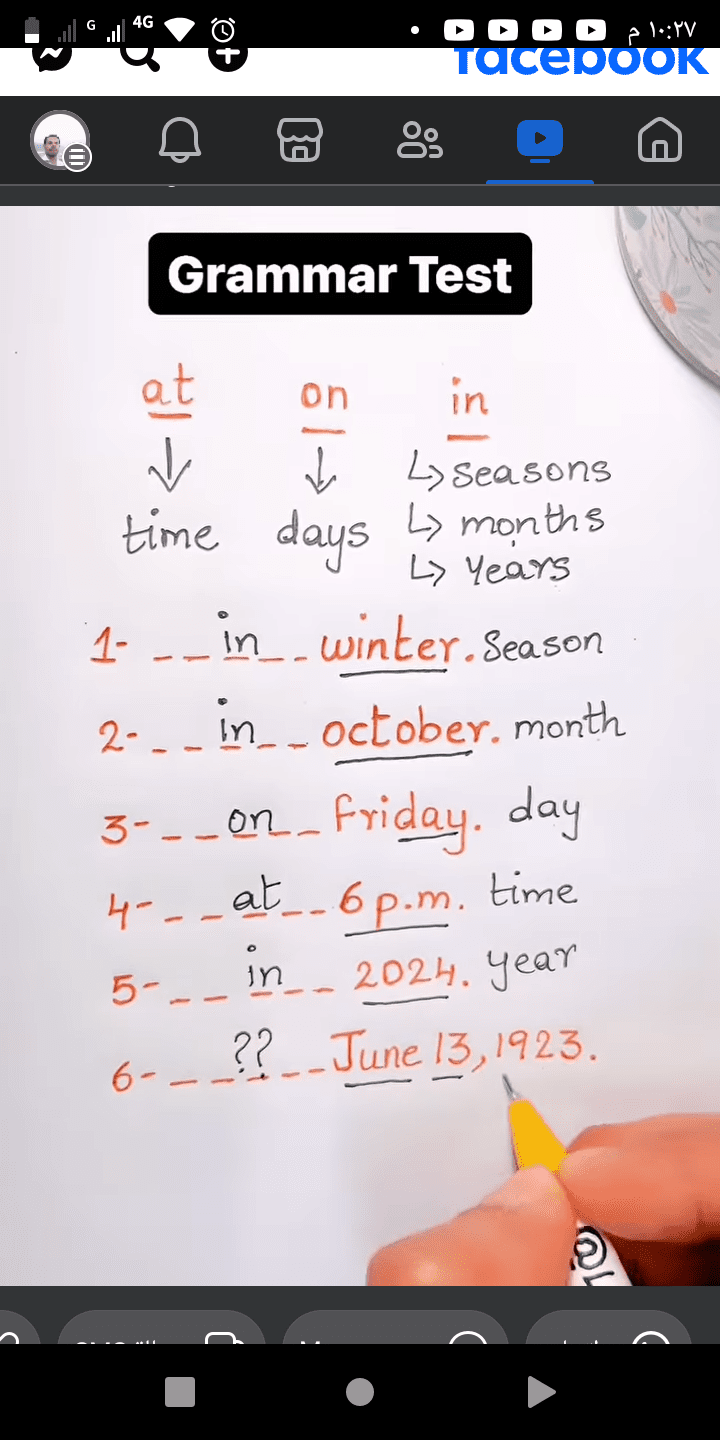 G 4G ١٠:٢٧ م
facebook
Grammar Test
at on in
time days
↳ seasons
↳ months
↳ Years
1- _ _ in _ _ winter. Season
2- _ _ in _ _ october. month
3- _ _ on _ _ Friday. day
4- _ _ at _ _ 6 p.m. time
5- _ _ in _ _ 2024. year
6- _ _ ?? _ _ June 13, 1923.
@L